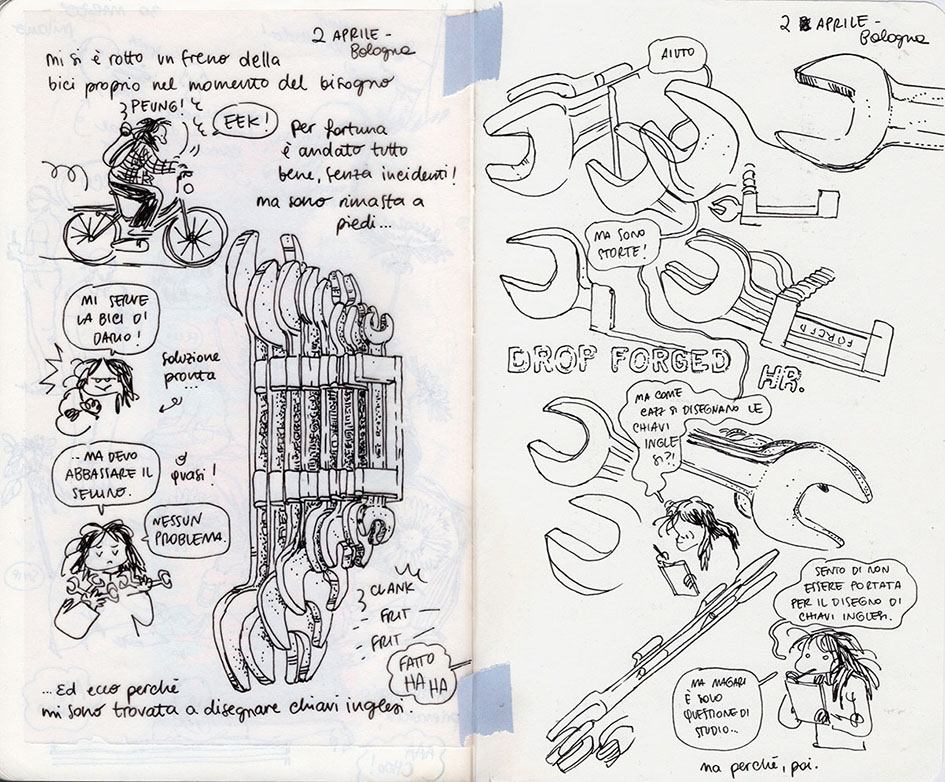 2 APRILE -
Bologna
mi si è rotto un freno della
bici proprio nel momento del bisogno
PEUNG!
EEK!
per fortuna
è andato tutto
bene, senza incidenti!
ma sono rimasta a
piedi...
MI SERVE
LA BICI DI
DARIO!
soluzione
pronta
...
..MA DEVO
ABBASSARE IL
SELLINO.
o
quasi!
NESSUN
PROBLEMA.
CLANK
FRIT
FRIT
FATTO
HA HA
...Ed ecco perché
mi sono trovata a disegnare chiavi inglesi.
2 APRILE -
Bologna
AIUTO
MA SONO
STORTE!
FORGED
DROP FORGED
HR.
MA COME
CAZZ SI DISEGNANO LE
CHIAVI
INGLE
SI?!
SENTO DI NON
ESSERE PORTATA
PER IL DISEGNO DI
CHIAVI INGLESI.
MA MAGARI
È SOLO
QUESTIONE DI
STUDIO...
ma perché, poi.